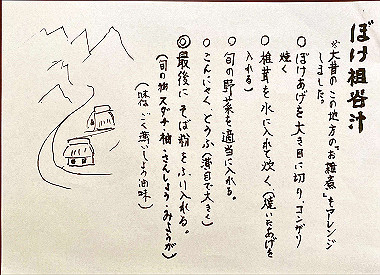 ぼけ祖谷汁
※大昔の、この地方の"お雑煮"をアレンジ
しました。
○ ぼけあげを大き目に切り、コンガリ
焼く
○ 椎茸を水に入れて炊く、(焼いたあげを
入れる)
○ 旬の野菜を適当に入れる。
○ こんにゃく、とうふ(薄目で大きく)
◎ 最後に、そば粉をふり入れる。
(旬の物 スダチ・柚・さんしょう・みょうが)
(味は、ごく薄いしょう油味)